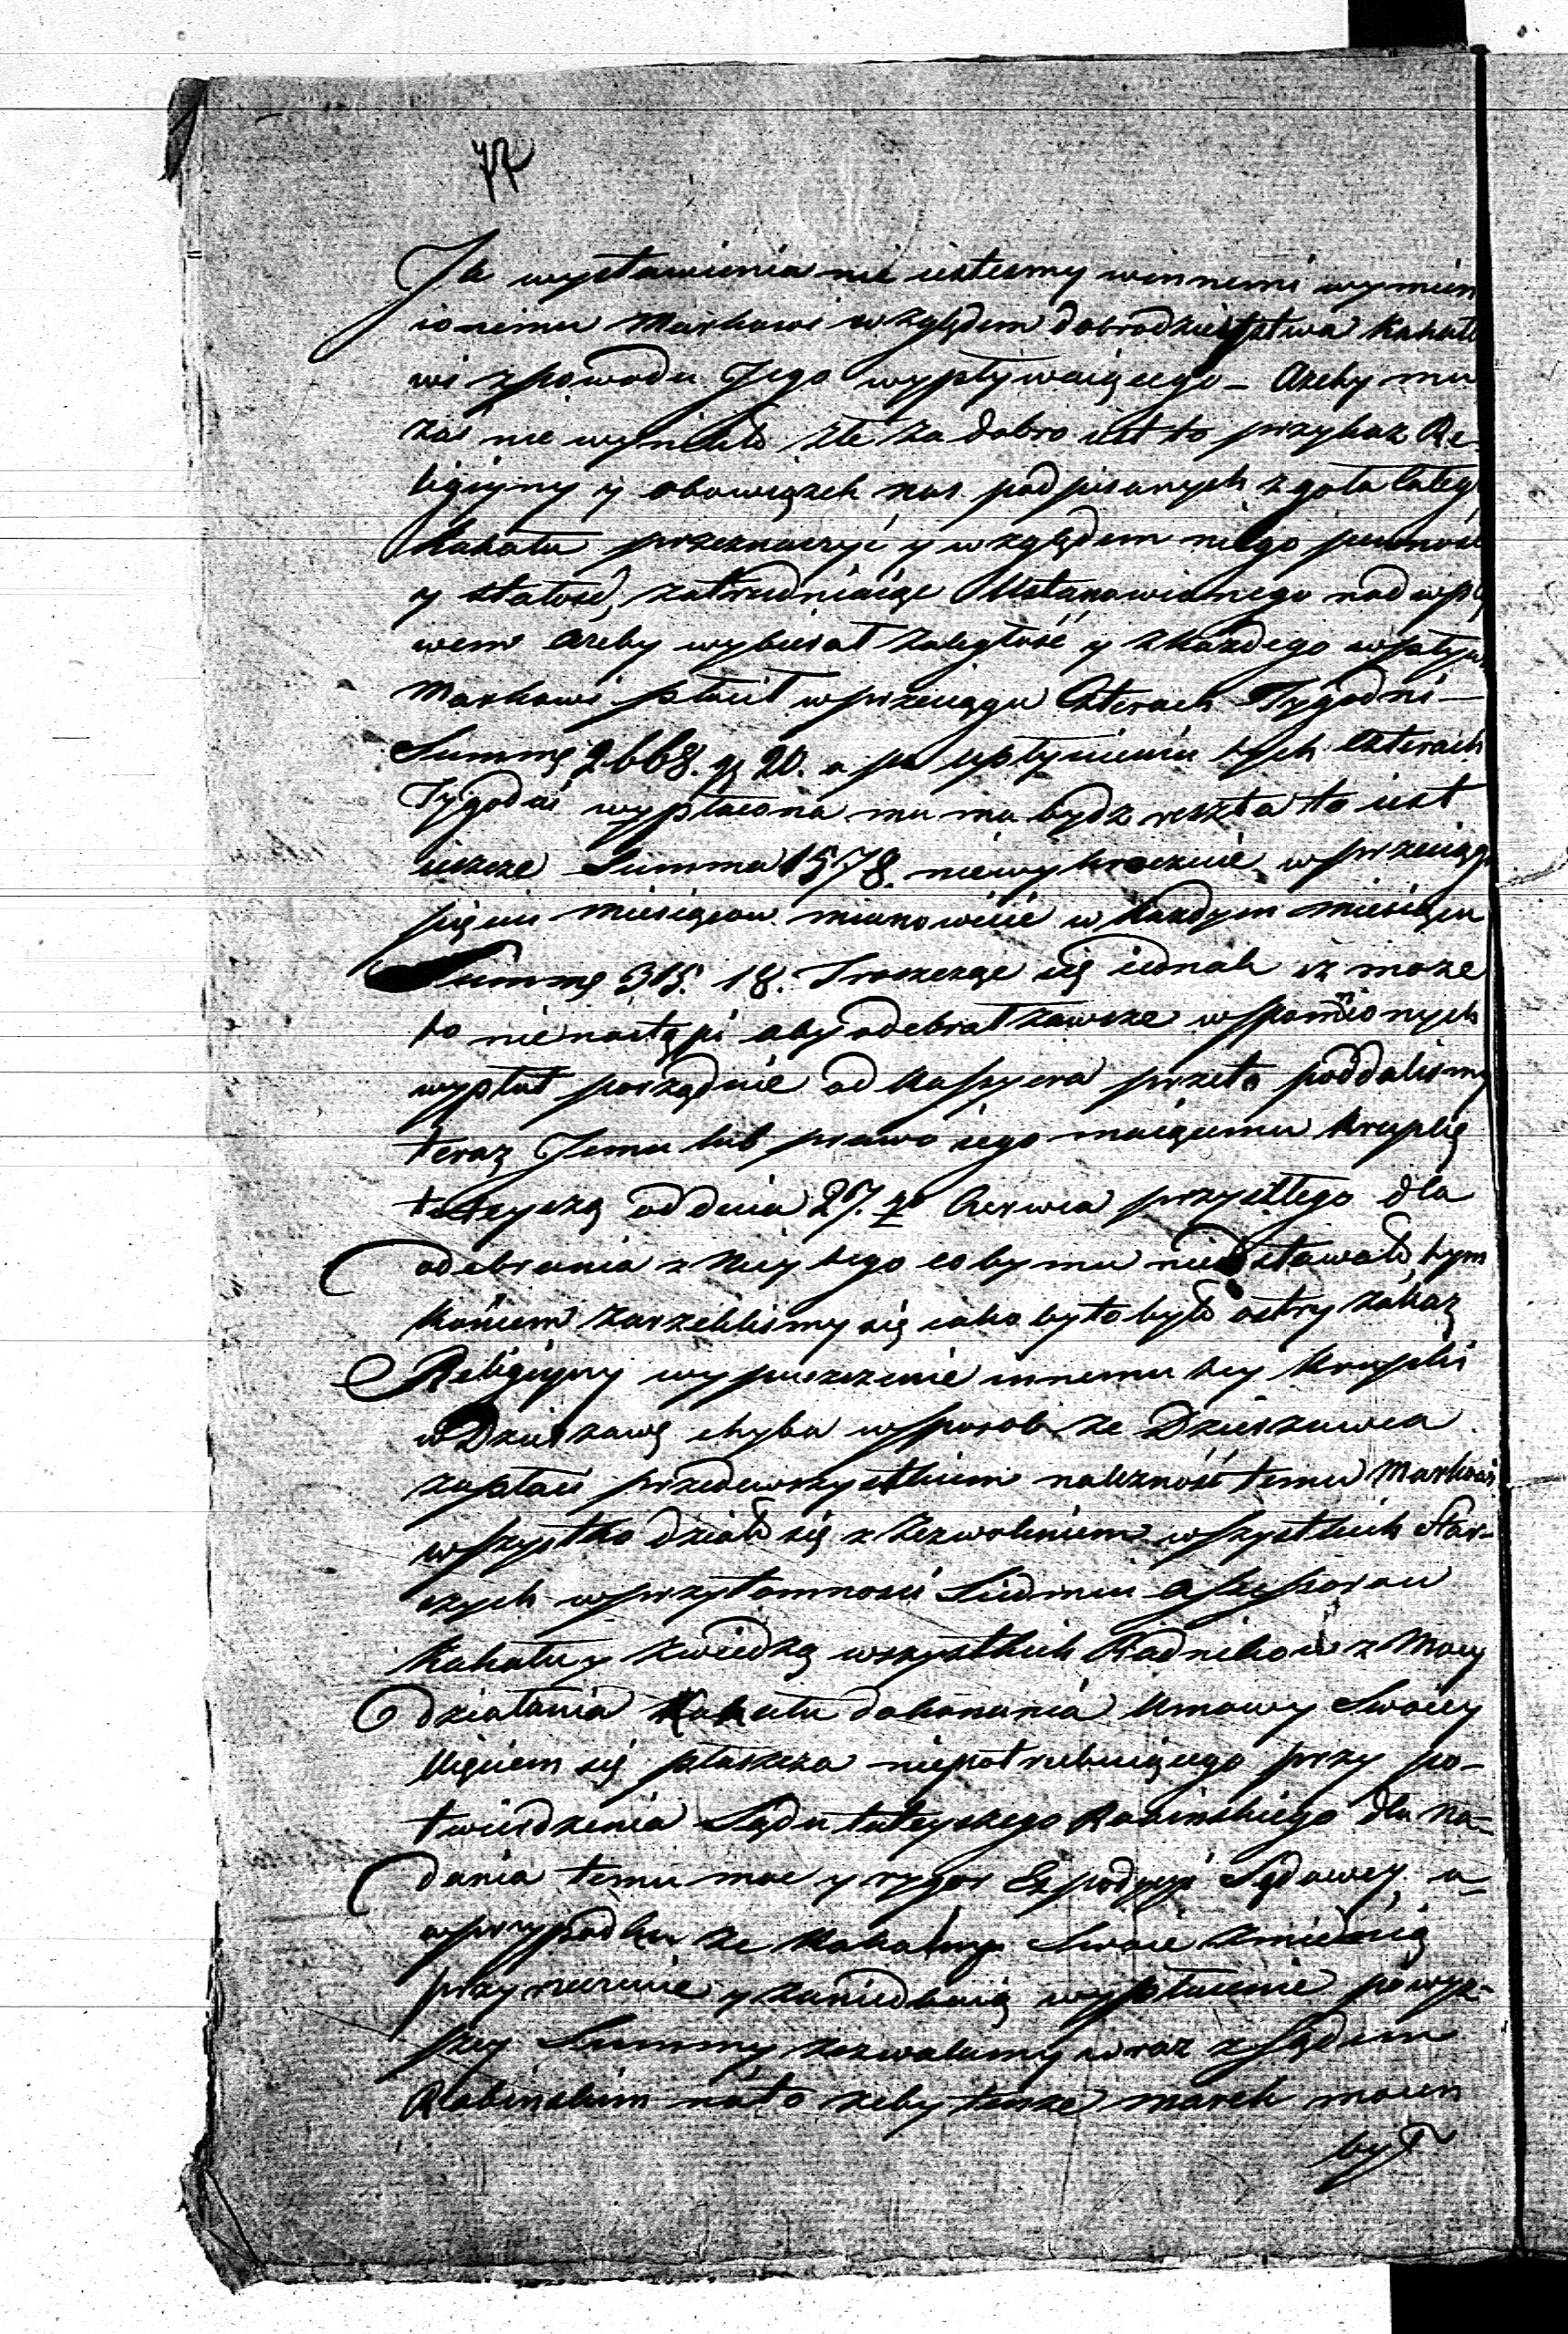 77
Ile wystawienia nie iestesmy winnemi wymien
ionemu Markowi względem dobrodzieystwa Kahało
wi z powodu Jego wypływaiącego - Ażeby mu
zaś nie wynikło złe za dobro iest to przykaz Re-
ligiyny y obowiązek nas podpisanych z goła całeg
Kahału przeznaczyć y względem niego pewność
y stałość, zatrudniaiąc Ustanowionego nad wpły
wem ażeby wybierał zaległość y z każdego wpływu
Markowi płacił w przeciągu Czterech Tygodni -
Summę 2668. gę 20. a po upłynieniu tych czterech
Tygodni wypłacona mu ma bydz reszta to iest
ieszcze Summa 1578. niewykraczaie w przeciągu
pięciu miesięcow mianowicie w każdym miesiącu
Summę 315. 18. Troszcząc się iednak iż może
to nie nastąpi aby odebrał zawsze wspomnionych
wypłat porządnie od Kassyera przeto poddalismy
teraz Jemu lub prawo iego maiącemu Krupkę
tuteyszą od dnia 27. go Czerwca przyszłego dla
odebrania z Niey tego co by mu niedostawało, tym
końcem zarzeklismy się iako by to było ostry zakaz
Religiyny wypuszczenie innemu tey Krupki
w Dzierzawę chyba w sposob ze Dzierzawca
zapłaci przedewszystkiem należność temu Markowi
wszystko działo się z zezwoleniem wszystkich Star-
szych w przytomności Siedmiu assessorow
Kahału y z wiedzą wszystkich Radnikow z Mocy
działania Kahału dokonania Umowy Swoiey
Uięciem się płaszcza niepotrebuiącego przy po-
twierdzenia Sądu tuteyszego Rabinskiego dla na-
dania temu moc y rygor Expedycyi Sądowey. a
w przypadku ze Kahał Swoie zmienią
przyrzeczenie y zaniedbaią wypłacenie powyż-
szey Summy zezwalamy wraz z Sądem
Rabinskim na to zeby tenże Marek mocen
był